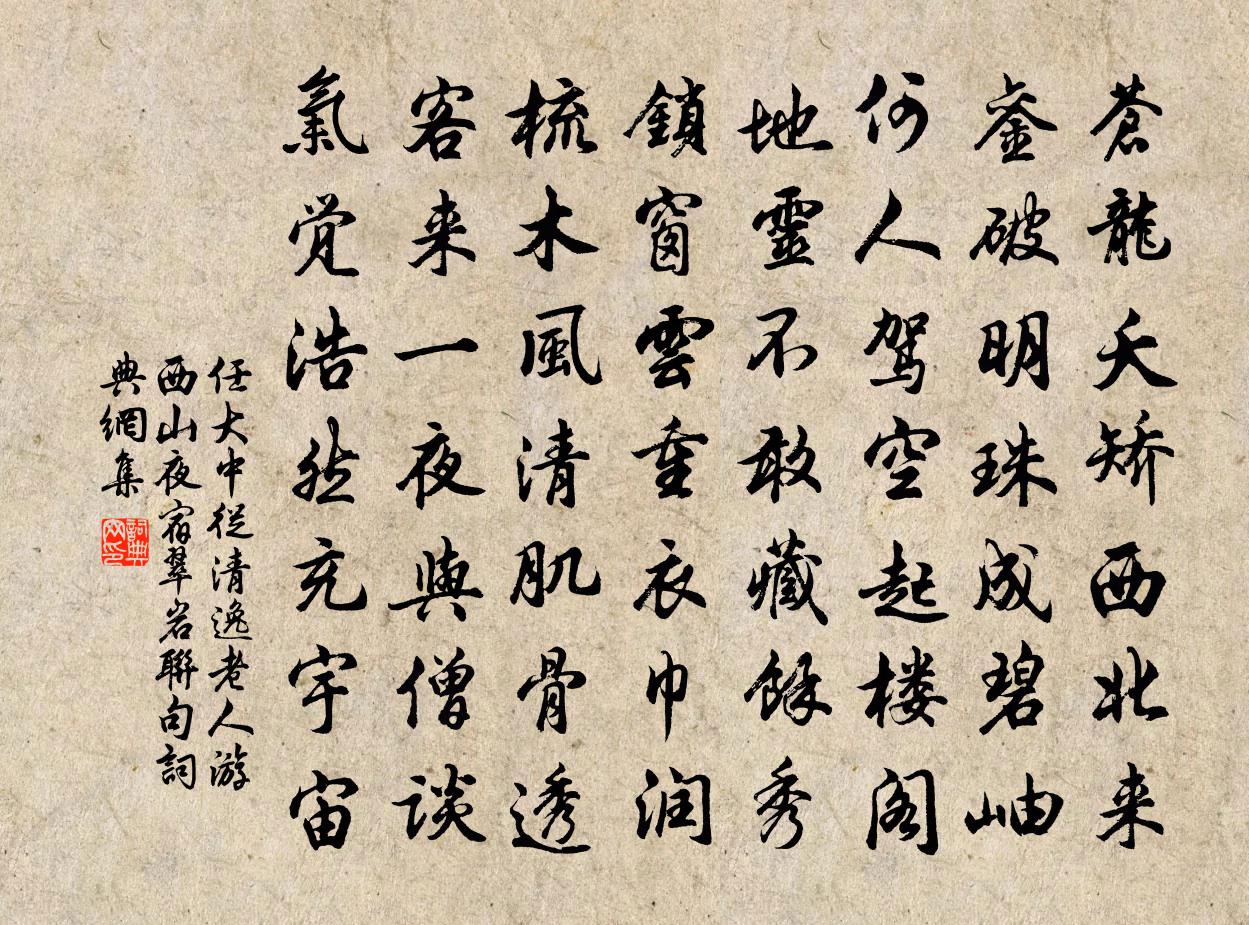 蒼龍夭矫西北来
鉴破明珠成碧岫
何人驾空起楼阁
地靈不敢藏餘秀
鎖窗雲重衣巾润
梳木風清肌骨透
客来一夜與僧談
氣觉浩然充宇宙
任大中從清逸老人游
西山夜宿翠岩聯句詞
典網集
詞典
网印